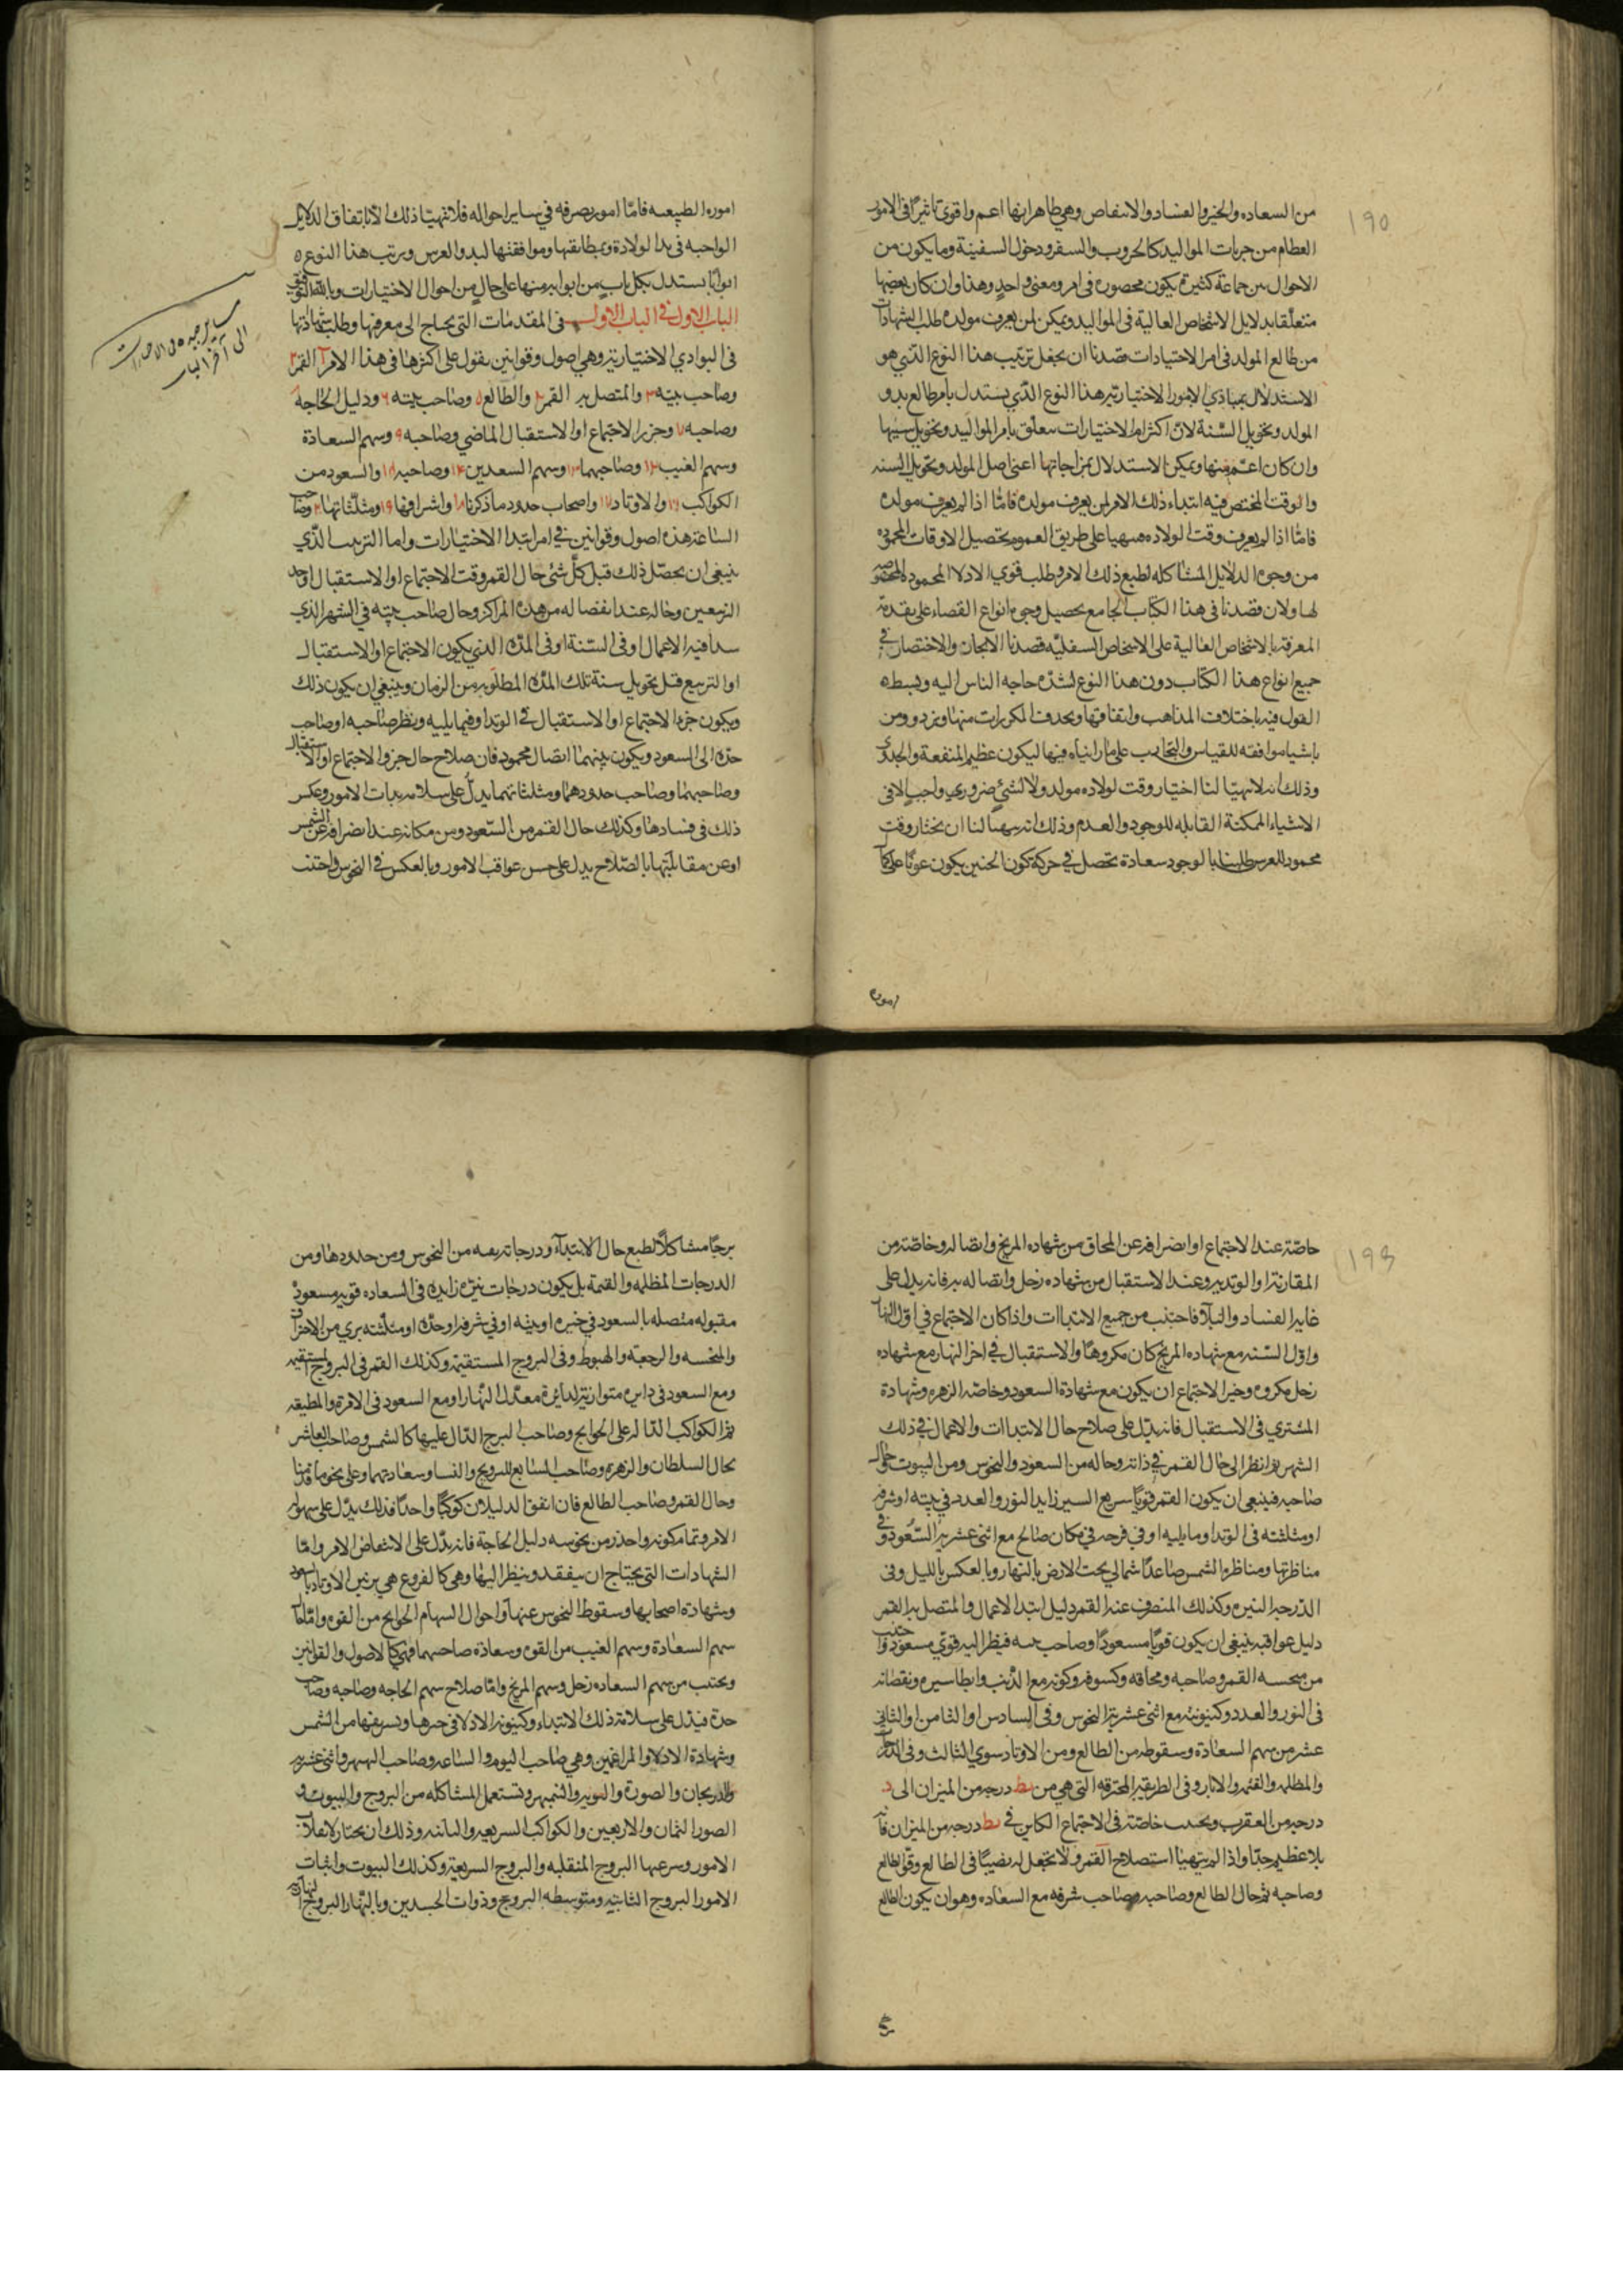 ۱۹۵
من السعاده والخير والفساد والانتقاص وهي ظاهر انها اعم واقوى تاثيرًا في الامور
العظام من جريات المواليد كالحروب والسفر ودخول السفينة وما يكون من
الاحوال بين جماعة كثيرة يكون محصوره في امر ومعنى واحدٍ وهذا وان كان بعضها
متعلّقا بدلايل الاشخاص العالية في المواليد ويمكن لمن يعرف مولده طلب الشهادات
من طالع المولد في امر الاختيارات قصدنا ان يجعل ترتيب هذا النوع الذي هو
الاستدلال بمبادي الامور الاختياريّه هذا النوع الذّي يستدل بامر طالع بدو
المولد وتحويل السّنة لانّ اكثر امر الاختيارات يتعلّق بامر المواليد وتحويل سنيها
وان كان اعمّ منها ويمكن الاستدلال بمزاجاتها اعني اصل المولد وتحويل السنه
والوقت المختص فيه ابتداء ذلك الامر لمن يعرف مولده فامّا اذا لم يعرف مولده
فامّا اذا لم يعرف وقت الولاده على طريق العموم تحصيل الاوقات المحموده
من وجوه الدلايل المشاكله لطبع ذلك الامر وطلب قوي الادلا المحموده المختصه
لها ولان قصدنا في هذا الكتاب الجامع تحصيل وجوه انواع القضاء على تقدمة
المعرفة بالاشخاص العالية على الاشخاص السفليّه قصدنا الايجاز والاختصار في
جميع انواع هذا الكتاب دون هذا النوع لشدّه حاجه الناس اليه وبسطه
القول فيه باختلاف المذاهب واتفاقها وبحذف المكررات منها ونزد ومن
باشيا موافقه للقياس والتجارب على ما رايناه فيها ليكون عظيم المنفعة والجدوى
وذلك انه لا يتهيّا لنا اختيار وقت لولاده مولد ولا لشئ ضروري واجب الا في
الاشياء الممكنة القابله للوجود والعدم وذلك انه يتهيا لنا ان نختار وقت
محمود للعرس طلبنا بالوجود سعادة تحصل في حركة تكون الجنين يكون عونًا على
اموره
اموره الطبيعيه فامّا امور تصرفه في ساير احواله فلا يتهيّا ذلك الّا باتفاق الدلايل
الواجبه في بدا لولادة ويمطابقتها وموافقتها لبدو العرس ونرتب هذا النوع
ابوابًا يستدل بكل بابٍ من ابوابه منها على حالٍ من احوال الاختيارات وبالله التوفيق
الباب الاول في الباب الاول في المقدمات التي يحتاج الى معرفتها وطلب شهاداتها
في البوادي الاختياريّه وهي اصول وقوانين يقول على اكثرها في هذا الامر ۱ القمر ۲
وصاحب بيته ۳ والمتصل به القمر ۴ والطالع ۵ وصاحب بيته ۶ ودليل الحاجة
وصاحبه ۷ وجزء الاجتماع او الاستقبال الماضي وصاحبه ۹ وسهم السعادة
وسهم الغيب ۱۲ وصاحبهما ۱۳ وسهم السعدين ۱۴ وصاحبه والسعود من
الكواكب ۱۶ والاوتاد ۱۷ واصحاب حدود ما ذكرنا ۱۸ واشرافها ۱۹ ومثلثاتها ۲۰ وصاحب
الساعة فهذه اصول وقوانين في امر ابتدا الاختيارات واما الترتيب الذّي
ينبغي ان يحصّل ذلك قبل كلّ شئ حال القمر وقت الاجتماع او الاستقبال او احد
التربيعين وحاله عند انفصاله من هذه المراكز وحال صاحب بيته في الشهر الذي
يبدا فيه الاعمال او في السّنة او في المدّه الذي يكون الاجتماع او الاستقبال
او التربيع قبل تحويل سنة تلك المدّه المطلوبه من الزمان وينبغي ان يكون ذلك
ويكون جزء الاجتماع او الاستقبال في الوتد او فيما يليه وينظر صاحبه او صاحب
حدّه الى السعود ويكون بينهما اتصال محمود فان صلاح حال جزو الاجتماع او الاستقبال
وصاحبهما وصاحب حدودهما ومثلثاتهما يدلّ على سلامة بدات الامور وعكس
ذلك في فسادها وكذلك حال القمر من السّعود ومن مكانه عند انصرافه عن الشمس
او عن مقابلتها بالصّلاح يدل على حسن عواقب الامور وبالعكس في النحوس واجتنب
۱۹۶
خاصّة عند الاجتماع او انصرافه عن المحاق من شهاده المريخ واتصاله وخاصّة من
المقارنة او الوتد به وعند الاستقبال من شهاده زحل واتصاله به فانه يدل على
غاية الفساد والبلآ فاجتنب من جميع الابتداات واذا كان الاجتماع في اوّل النهار
واوّل السّنه مع شهاده المريخ كان مكروهًا والاستقبال في اخر النهار مع شهاده
زحل مكروه وخير الاجتماع ان يكون مع شهادة السعود وخاصّه الزهره وشهادة
المشتري في الاستقبال فانه يدّل على صلاح حال الابتداات والاعمال في ذلك
الشهر ثم انظر الى حال القمر في ذاته وحاله من السعود والنحوس ومن البيوت وحال
صاحبه فينبغي ان يكون القمر قويًّا سريع السير زايد النور والعدد في بيته او شرفه
او مثلثته في الوتد او ما يليه او في فرحه في مكان صالح مع اثنى عشرية السّعود وفي
مناظرتها ومناظرة الشمس صاعدًا شمالي تحت الارض بالنهار وبالعكس بالليل وفي
الدّرجه النيره وكذلك المنصرف عند القمر دليل ابتدا الاعمال والمتصل به القمر
دليل عواقبه ينبغي ان يكون قويًّا مسعودًا وصاحب بيته فينظر اليه قوي مسعود واجتنب
من منحسه القمر وصاحبه ومحاقه وكسوفه وكونه مع الذّنب وابطا سيره ونقصانه
في النور والعدد وكينونته مع اثنى عشرية النحوس وفي السادس او الثامن او الثاني
عشر من سهم السعادة وسقوطه من الطالع ومن الاوتاد سوي الثالث وفي الدرجات
والمظلمه والقتمه والابار وفي الطريقه المحترقه التي هي من يط درجه من الميزان الى د
درجه من العقرب ويجتنب خاصّة في الاجتماع الكاين في يط درجه من الميزان فانه
بلا عظيم جدّا واذا لم يتهيّا استصلاح القمر ولا تجعل له نصيبًا في الطالع وقوّ الطالع
وصاحبه ثم حال الطالع وصاحبه وصاحب شرفه مع السعاده وهو ان يكون الطالع
برجًا مشاكلًا لطبع حال الابتدآء ودرجاته بريه من النحوس ومن حدودها ومن
الدرجات المظلمه والقتمة بل يكون درجات نيّره زايده في السعاده قويه مسعودة
مقبوله متصله بالسعود في حيزه او بيته او في شرفه او حدّه او مثلّثته بري من الاحتراق
والمنحسه والرجعة والهبوط وفي البروج المستقيمة وكذلك القمر في البروج المستقيمه
ومع السعود في دايره متوازية لدايرة معدل النّهار او مع السعود في الامرة والمطيعه
ثم الكواكب الدّالة على الحوايج وصاحب البرج الدّال عليها كالشمس وصاحب العاشر
بحال السلطان والزهره وصاحب السابع للترويج والنسا وسعادتهما وعلى نحو ما قدمنا
وحال القمر وصاحب الطالع فان اتفق الدليلان كوكبًا واحدًا فذلك يدّل على سهولة
الامر وتمامه واحذر من نحوسه دليل الحاجة فانه يدّل على الانتقاض الامر وامّا
الشهادات التي يحتاج ان يتفقد وينظر اليها وهي كالفروع هي تزيين الاوتاد بالسعود
وشهادة اصحابها وسقوط النحوس عنها واحوال السهام الحوايج من القوه وامّا
سهم السعادة وسهم الغيب من القوه وسعادة صاحبهما فهي كالاصول والقوانين
ويجتنب من سهم السعاده زحل وسهم المريخ وامّا صلاح سهم الحاجه وصاحبه وصاحب
حدّه فيدّل على سلامة ذلك الابتداء وكينونه الادلا في حيزها وتشريقها من الشمس
وشهادة الادلاو المزاعمين وهي صاحب اليوم والساعه وصاحب النهبهر واثنى عشريه
والدريجان والصورة والنويهر والنمبهر وتستعمل المشاكله من البروج والبيوت و
الصور الثمان والاربعين والكواكب السريعه والثابته وذلك ان يختار لانقلاب
الامور وسرعتها البروج المنقلبه والبروج السريعة وكذلك البيوت واثبات
الامور البروج الثابتيه ومتوسطه البروج وذوات الجسدين وبالنّهار البروج النهاريه